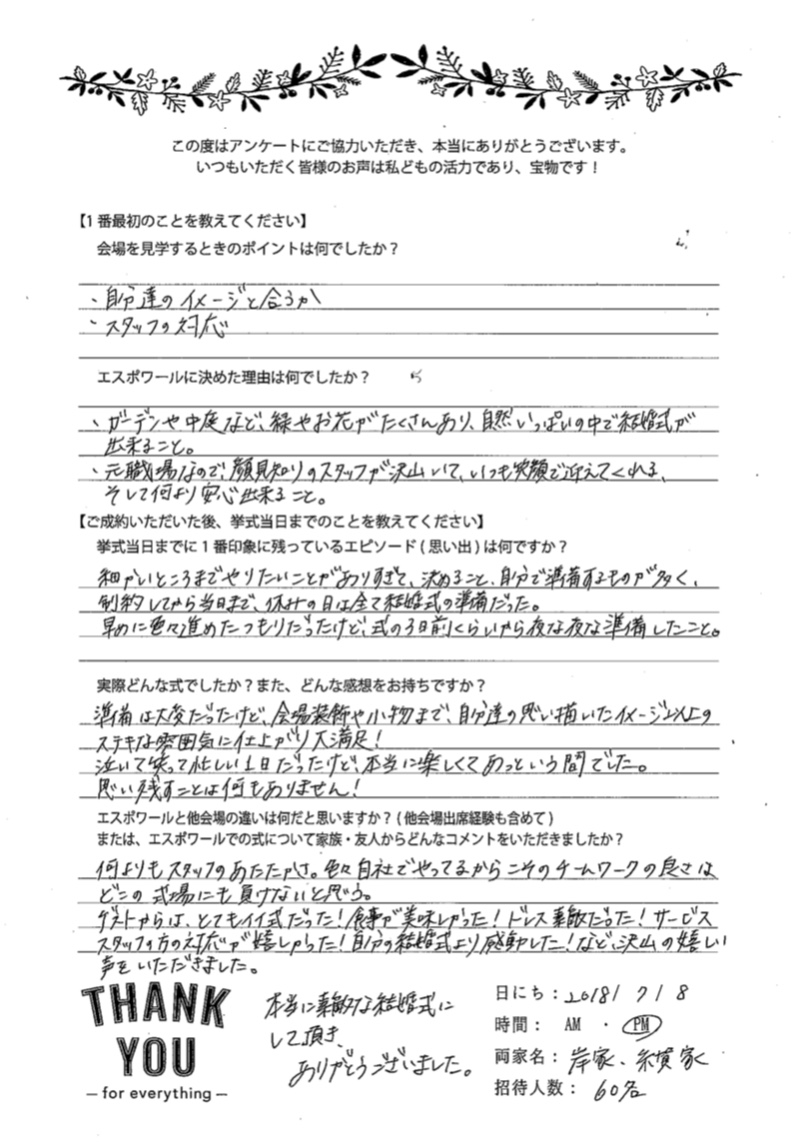 この度はアンケートにご協力いただき、本当にありがとうございます。
いつもいただく皆様のお声は私どもの活力であり、宝物です！
【1番最初のことを教えてください】
会場を見学するときのポイントは何でしたか？
、自分達のイメージと合うか
・スタッフの対応
エスポワールに決めた理由は何でしたか？
、ガーデンや中庭など、緑やお花がたくさんあり、自然いっぱいの中で結婚式が
出来ること。
・元職場なので、顔見知りのスタッフが沢山いて、いつも笑顔で迎えてくれる、
そして何より安心出来ること。
【ご成約いただいた後、挙式当日までのことを教えてください】
挙式当日までに1番印象に残っているエピソード(思い出)は何ですか？
細かいところまでやりたいことがありすぎて、決めること、自分で準備するものが多く、
制約してから当日まで、休みの日は全て結婚式の準備だった。
早めに色々進めたつもりだったけど、式の3日前くらいから夜な夜な準備したこと。
実際どんな式でしたか？また、どんな感想をお持ちですか？
準備は大変だったけど、会場装飾や小物まで、自分達の思い描いたイメージ以上の
ステキな雰囲気に仕上がり大満足！
泣いて笑って忙しい1日だったけど、本当に楽しくてあっという間でした。
思い残すことは何もありません！
エスポワールと他会場の違いは何だと思いますか？(他会場出席経験も含めて)
または、エスポワールでの式について家族・友人からどんなコメントをいただきましたか？
何よりもスタッフのあたたかさ。色々自社でやってるからこそのチームワークの良さは
どこの式場にも負けないと思う。
ゲストからは、とてもイイ式だった！食事が美味しかった！ドレス素敵だった！サービス
スタッフの方の対応が嬉しかった！自分の結婚式より感動した！など、沢山の嬉しい
声をいただきました。
THANK
YOU
– for everything –
本当に素敵な結婚式に
して頂き、
ありがとうございました。
日にち：2018/7/8
時間： AM ・ PM
両家名：岸家、糸賀家
招待人数： 60名